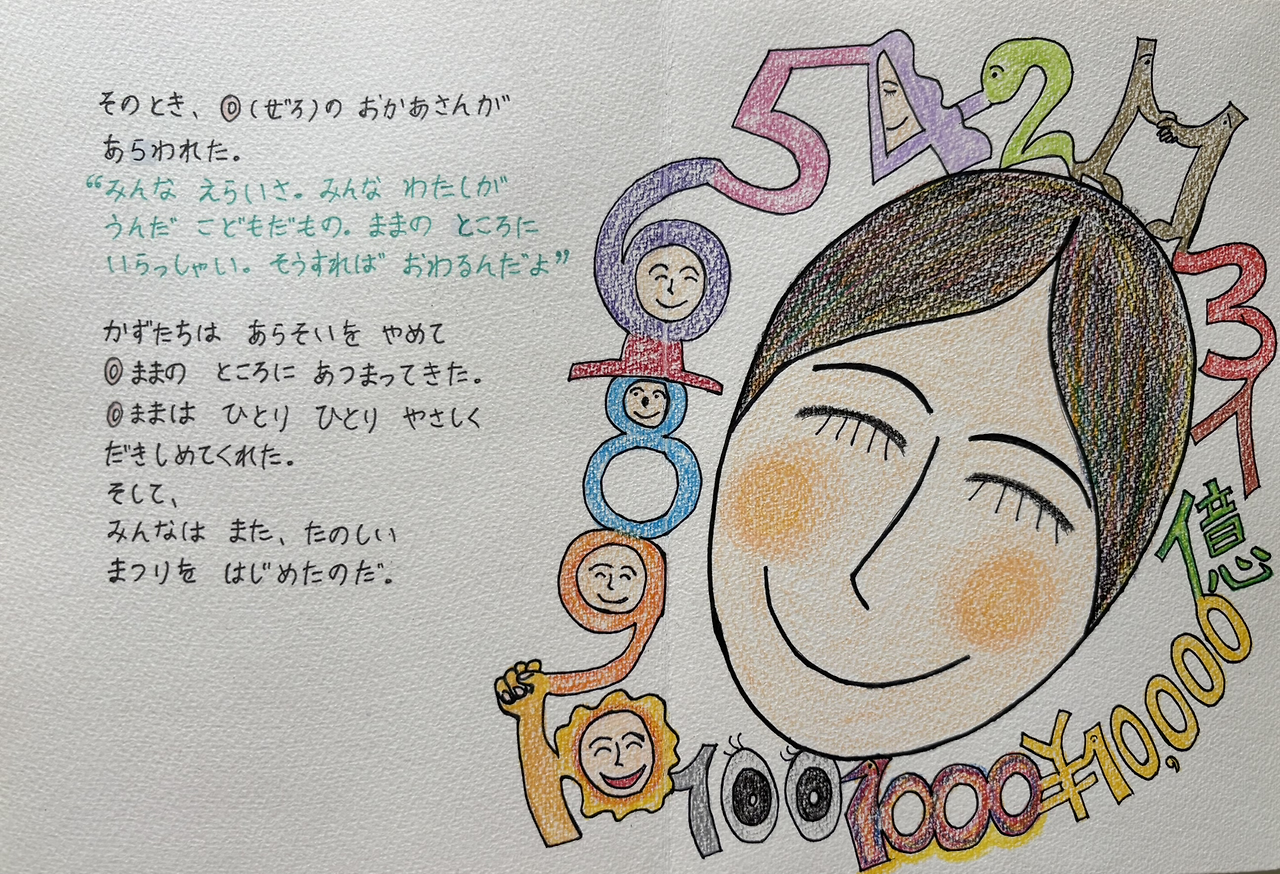 そのとき、0(ぜろ)の おかあさんが
あらわれた。
“みんな えらいさ。みんな わたしが
うんだ こどもだもの。ままの ところに
いらっしゃい。そうすれば おわるんだよ”
かずたちは あらそいを やめて
0ままの ところに あつまってきた。
0ままは ひとり ひとり やさしく
だきしめてくれた。
そして、
みんなは また、たのしい
まつりを はじめたのだ。
5 4 2
7
6
3
8
1
億
9
10
100 1000 ¥10,000